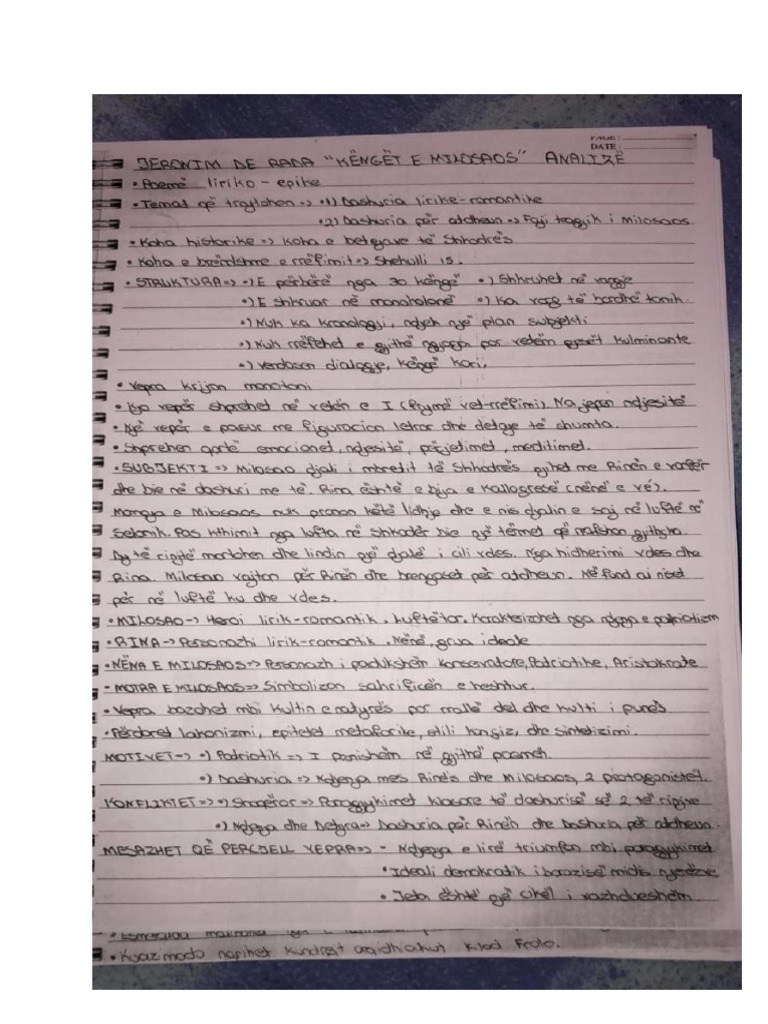 PAGE:
DATE:
JERONIM DE RADA "KËNGËT E MILOSAOS" ANALIZË
• Poemë liriko - epike
• Temat që trajtohen => •1) Dashuria lirike-romantike
•2) Dashuria për atdheun => Faji tragjik i Milosaos
• Koha historike => Koha e betejave të Shkodrës
• Koha e brendshme e rrëfimit => Shekulli 15.
• STRUKTURA => •) E përbërë nga 30 këngë •) Shkruhet në vargje
•) E shkruar në monokolonë •) Ka varg të bardhë tonik.
•) Nuk ka kronologji, ndjek një plan subjekti
•) Nuk rrëfehet e gjithë ngjarja por vetëm pjesët kulminante
•) Vendosen dialogje, këngë kori,
• Vepra krijon monotoni
• Kjo vepër shprehet në vetën e I (frymë vet-rrëfimi). Na jepen ndjesitë
• Një vepër e pasur me figuracion letrar dhe detaje të shumta.
• Shprehen qartë emocionet, ndjesitë, përjetimet, meditimet.
• SUBJEKTI => Milosao djali i mbretit të Shkodrës njihet me Rinën e varfër
dhe bie në dashuri me të. Rina është e bija e Kallogresë (nënë e vé).
Mamaja e Milosaos nuk pranon këtë lidhje dhe e nis djalin e saj në luftë në
Selanik. Pas kthimit nga lufta në Shkodër bie një tërmet që rrafshon gjithçka.
Dy të rinjtë martohen dhe lindin një djalë i cili vdes. Nga hidherimi vdes dhe
Rina. Milosao vajton për Rinën dhe brengoset për atdheun. Në fund ai niset
për në luftë ku dhe vdes.
• MILOSAO -> Heroi lirik-romantik. Luftëtar. Karakterizhet nga ndjenja e patriotizm
• RINA -> Personazhi lirik-romantik. Nënë, grua ideale
• NËNA E MILOSAOS => Personazh i podukshëm Konservatore, Patriotike, Aristokrate
- MOTRA E MILOSAOS => Simbolizon sakrificën e heshtur.
• Vepra bazohet mbi kultin e natyrës por mbi të del dhe kulti i punës
• Përdoret lakonizmi, epitetet metaforike, stili konçiz, dhe sintetizimi.
MOTIVET -> •) Patriotik => I panishëm në gjithë poemën.
•) Dashuria => Ndjenja mes Rinës dhe Milosaos, 2 protagonistët.
KONFLIKTET => •) Shoqëror => Paragjykimet klasore të dashurisë së 2 të rinjve
•) Ndjenja dhe Detyra => Dashuria për Rinën dhe Dashuria për atdheun.
MESAZHET QË PERCJELL VEPRA => - Ndjenja e lirë triumfon mbi paragjykimet
• Ideali demokratik i barazisë midis njerëzve
• Jeta është një cikël i vazhdueshëm.
• Esmeralda
• Kuazimodo nxrihet kundrejt Klod Frolo.